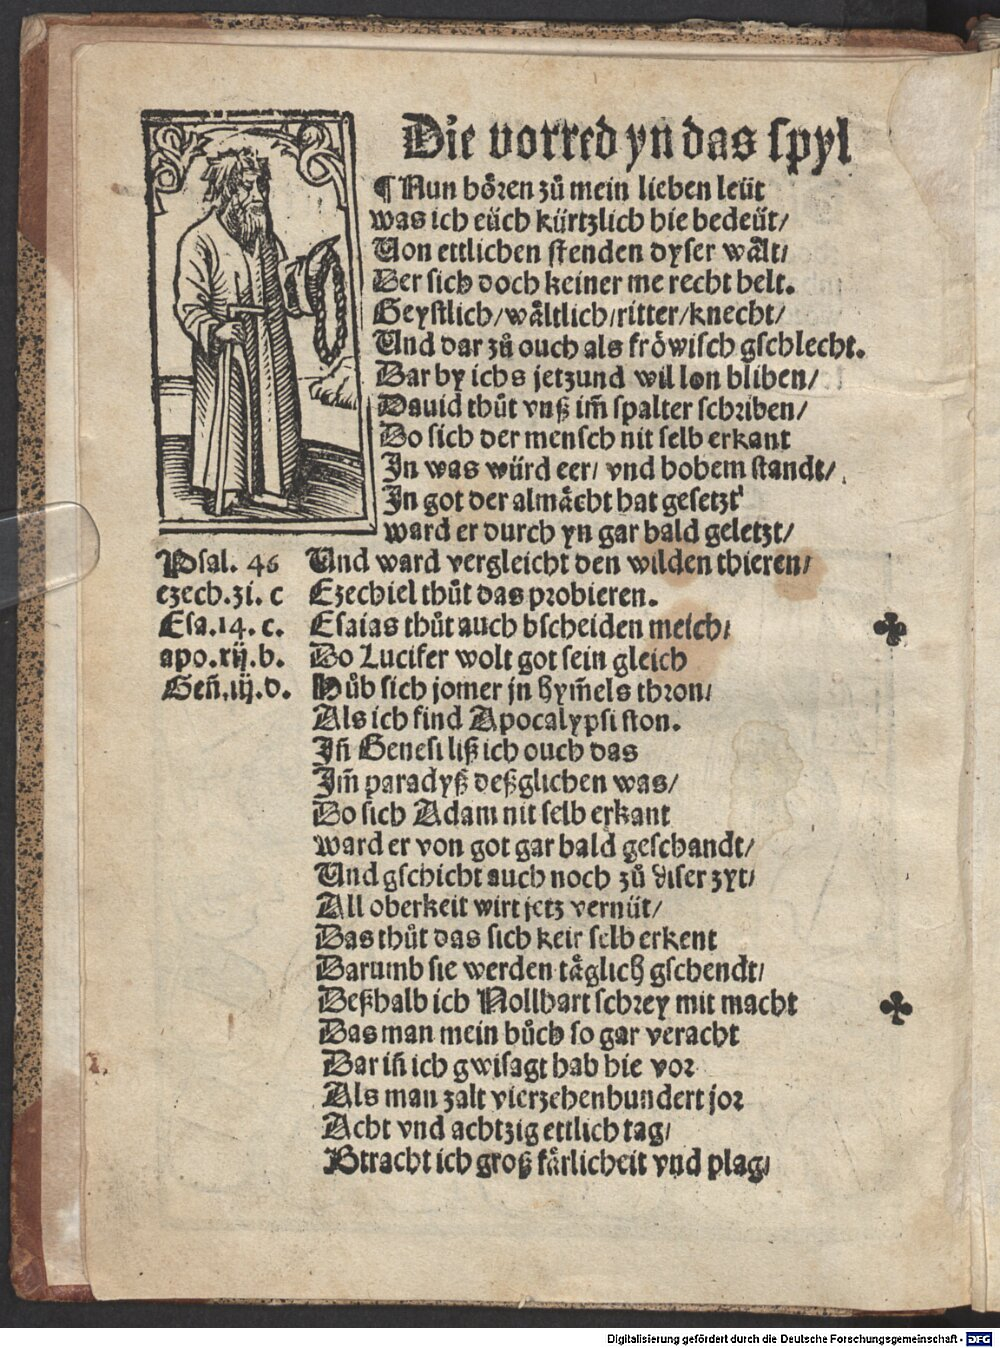 Die vorred yn das spyl
¶ Nun hoͤren zuͦ mein lieben leüt
was ich eüch kürtzlich hie bedeüt/
Von ettlichen stenden dyser waͤlt/
Der sich doch keiner me recht helt.
Geystlich/waͤltlich/ritter/knecht/
Und dar zuͦ ouch als froͤwisch gschlecht.
Dar by ichs jetzund wil lon bliben/
Dauid thuͦt vnß im̄ spalter schriben/
Do sich der mensch nit selb erkant
In was würd eer/ vnd hohem standt/
In got der almaͤcht hat gesetzt
ward er durch yn gar bald geletzt/
Psal. 46 Und ward vergleicht den wilden thieren/
ezech.31. c Ezechiel thuͦt das probieren.
Esa.14. c. Esaias thuͦt auch bscheiden meich/
apo.xij.b. Do Lucifer wolt got sein gleich
Geñ.iij.d. Huͦb sich jomer jn hym̄els thron/
Als ich find Apocalypsi ston.
Iñ Genesi liß ich ouch das
Im̄ paradyß deßglichen was/
Do sich Adam nit selb erkant
ward er von got gar bald geschandt/
Und gschicht auch noch zuͦ diser zyt/
All oberkeit wirt jetz vernüt/
Das thuͦt das sich keir selb erkent
Darumb sie werden taͤglich gschendt/
Deßhalb ich Nollhart schrey mit macht
Das man mein buͦch so gar veracht
Dar iñ ich gwisagt hab hie vor
Als man zalt vierzehenhundert jor
Acht vnd achtzig ettlich tag/
Btracht ich groß faͤrlicheit vnd plag/
Digitalisierung gefördert durch die Deutsche Forschungsgemeinschaft - DFG